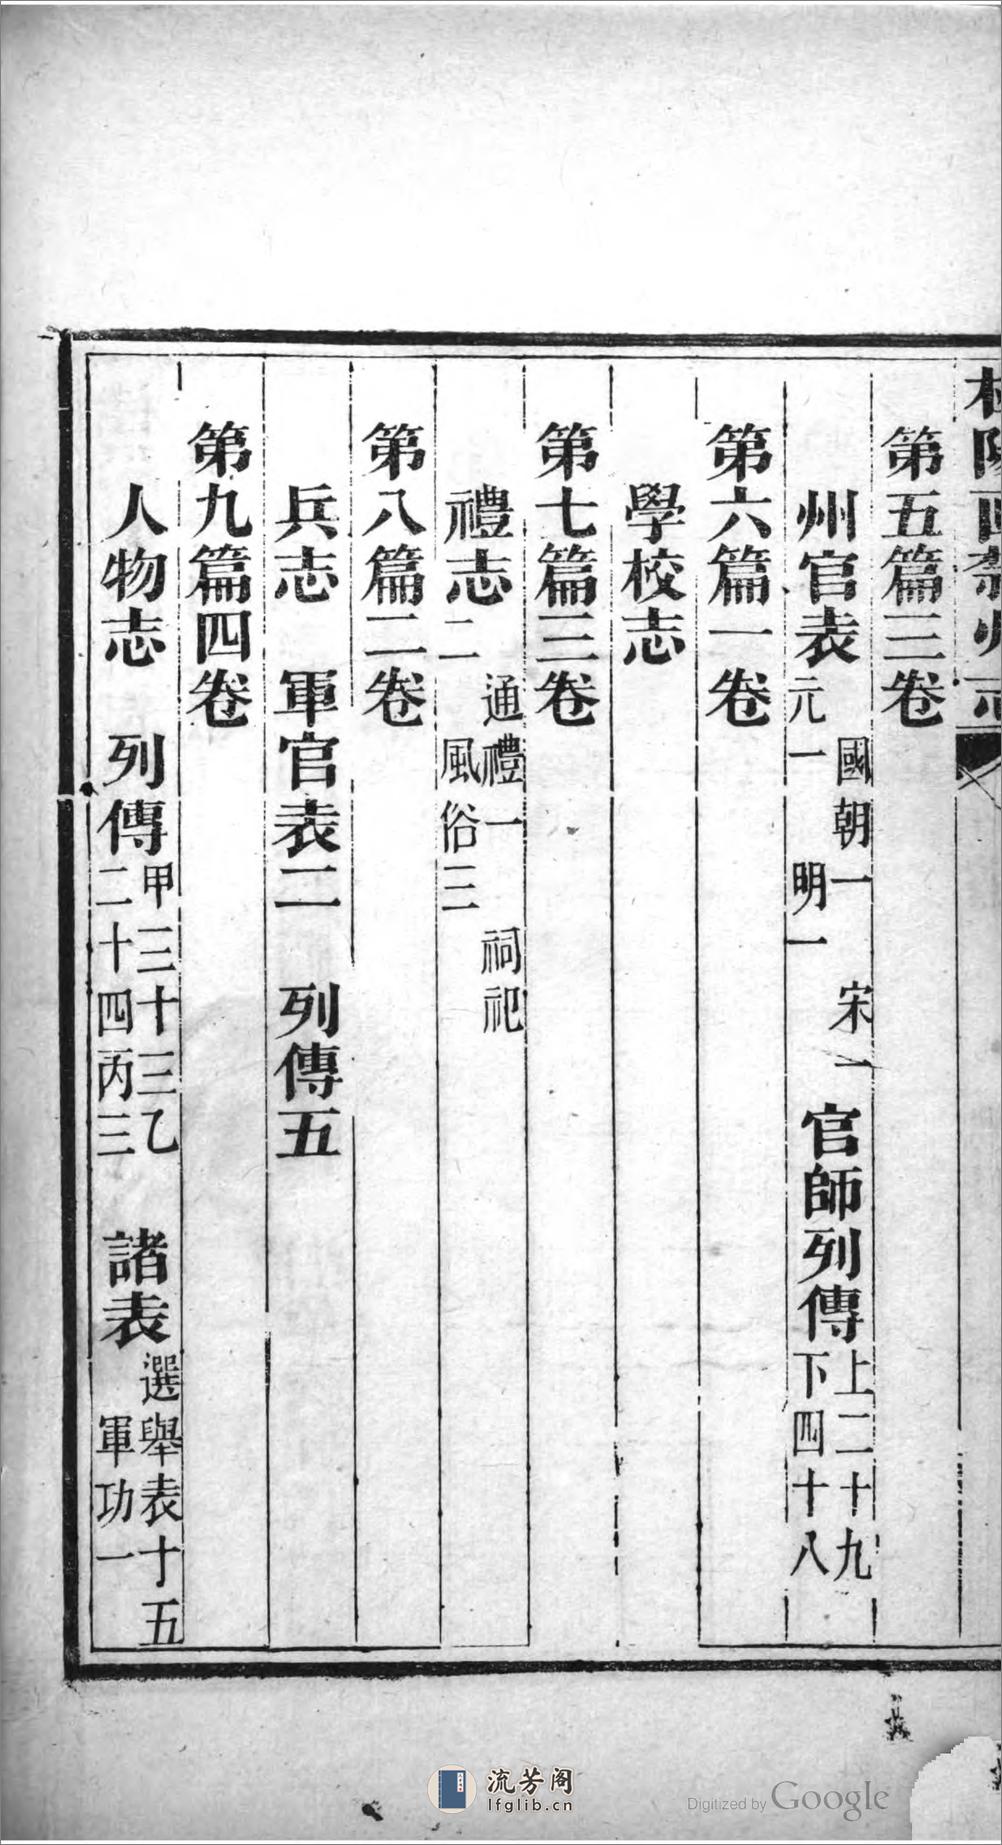 第五篇三卷
州官表 國朝一 宋一 元一 明一 官師列傳 上二十九 下四十八
第六篇一卷
學校志
第七篇三卷
禮志二 通禮一 祠祀二 風俗三
第八篇二卷
兵志 軍官表二 列傳五
第九篇四卷
人物志 列傳 甲三十三乙二十四丙三 諸表 選舉表十五 軍功一
流芳阁
lfglib.cn
Digitized by Google